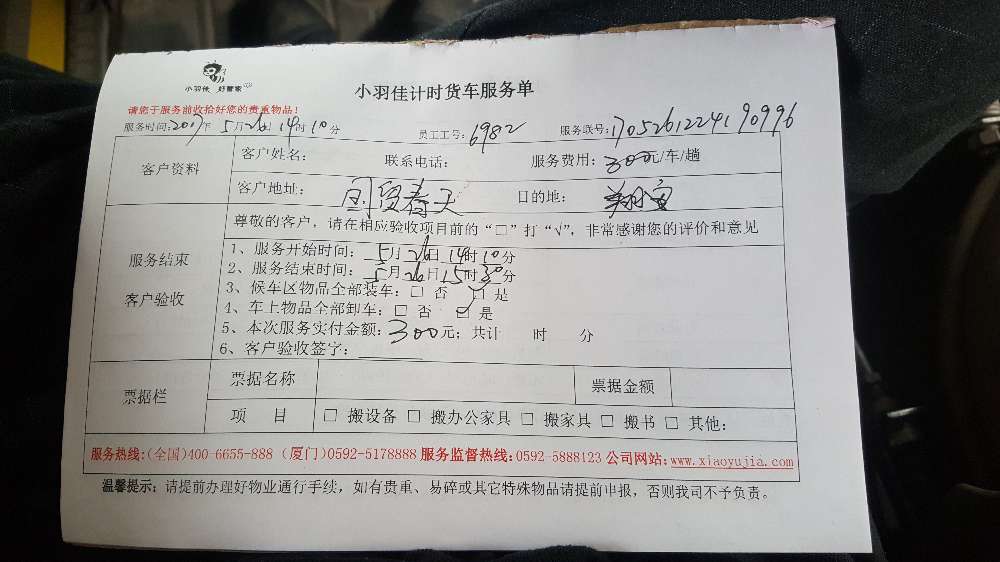 小羽佳 好管家
小羽佳计时货车服务单
请您于服务前收拾好您的贵重物品!
服务时间:2017年 5月26日 14时10分 员工工号:6982 服务联号:170526122419 0996
客户资料
客户姓名: 联系电话: 服务费用:300元/车/趟
客户地址: 国贸春天 目的地:
服务结束
客户验收
尊敬的客户,请在相应验收项目前的“□”打“√”,非常感谢您的评价和意见
1、服务开始时间:5月26日14时10分
2、服务结束时间:5月26日15时30分
3、候车区物品全部装车:□ 否 ☑ 是
4、车上物品全部卸车:□ 否 ☑ 是
5、本次服务实付金额:300元;共计 时 分
6、客户验收签字:
票据栏
票据名称 票据金额
项 目 □ 搬设备 □ 搬办公家具 □ 搬家具 □ 搬书 □ 其他:
服务热线:(全国)400-6655-888 (厦门)0592-5178888 服务监督热线:0592-5888123 公司网站:www.xiaoyujia.com
温馨提示:请提前办理好物业通行手续,如有贵重、易碎或其它特殊物品请提前申报,否则我司不予负责。